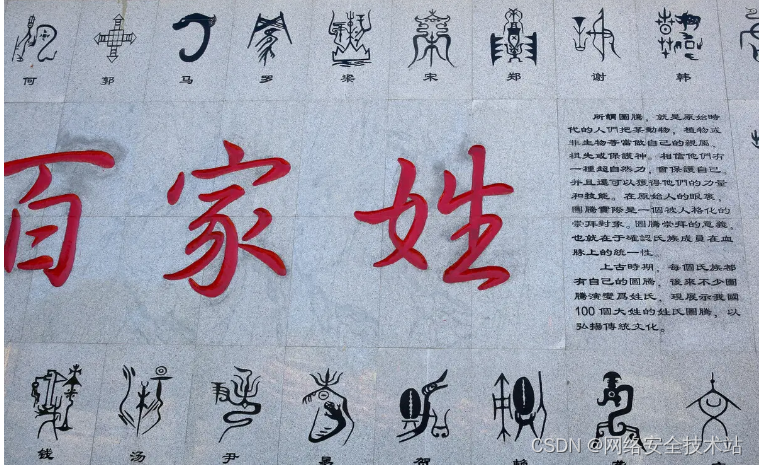 何 郭 马 罗 梁 宋 郑 谢 韩
百家姓
所謂圖騰，就是原始時
代的人們把某動物，植物或
非生物等當做自己的親屬，
祖先或保護神。相信他們有
一種超自然力，會保護自己，
并且還可以獲得他們的力量
和技能。在原始人的眼裏，
圖騰實際是一個被人格化的
崇拜對象。圖騰崇拜的意義，
也就在于確認氏族成員在血
脉上的統一性。
上古時期，每個氏族都
有自己的圖騰，後來不少圖
騰演變爲姓氏，現展示我國
100個大姓的姓氏圖騰，以
弘揚傳統文化。
钱 汤 尹 易 贺 赖
CSDN @网络安全技术站